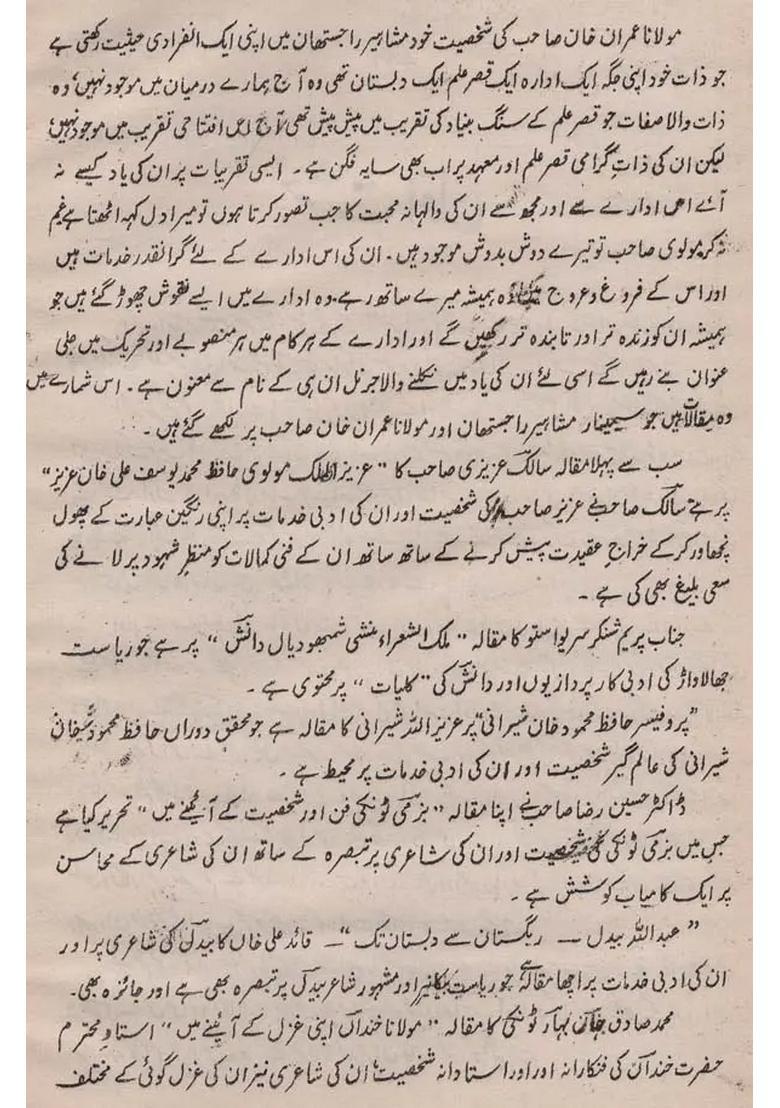 مولانا عمران خان صاحب کی شخصیت خود مشاہیر راجستھان میں اپنی ایک انفرادی حیثیت رکھتی ہے
جو ذات خود اپنی جگہ ایک ادارہ ایک قصر علم ایک دبستان تھی وہ آج ہمارے درمیان میں موجود نہیں، وہ
ذات والا صفات جو قصر علم کے سنگ بنیاد کی تقریب میں پیش پیش تھی آج اس افتتاحی تقریب میں موجود نہیں،
لیکن ان کی ذاتِ گرامی قصر علم اور معہد پر اب بھی سایہ فگن ہے۔ ایسی تقریبات پر ان کی یاد کیسے نہ
آئے اس ادارے سے اور مجھ سے ان کی والہانہ محبت کا جب تصور کرتا ہوں تو میرا دل کہہ اٹھتا ہے غم
نہ کر مولوی صاحب تو تیرے دوش بدوش موجود ہیں۔ ان کی اس ادارے کے لئے گرانقدر خدمات ہیں
اور اس کے فروغ و عروج وہ ہمیشہ میرے ساتھ رہے۔ وہ ادارے میں ایسے نقوش چھوڑ گئے ہیں جو
ہمیشہ ان کو زندہ تر اور تابندہ تر رکھیں گے اور ادارے کے ہر کام میں ہر منصوبے اور تحریک میں جلی
عنوان بنے رہیں گے اسی لئے ان کی یاد میں نکلنے والا جرنل ان ہی کے نام سے معنون ہے۔ اس شمارے میں
وہ مقالات ہیں جو سیمینار مشاہیر راجستھان اور مولانا عمران خان صاحب پر لکھے گئے ہیں۔
سب سے پہلا مقالہ سالک عزیزی صاحب کا "عزیز الملک مولوی حافظ محمد یوسف علی خان عزیز"
پر ہے سالک صاحب نے عزیز صاحب کی شخصیت اور ان کی ادبی خدمات پر اپنی رنگین عبارت کے پھول
نچھاور کر کے خراجِ عقیدت پیش کرنے کے ساتھ ساتھ ان کے فنی کمالات کو منظرِ شہود پر لانے کی
سعی بلیغ بھی کی ہے۔
جناب پریم شنکر سریواستو کا مقالہ "ملک الشعراء منشی شمبھو دیال دانش" پر ہے جو ریاست
جھالاواڑ کی ادبی کارپردازیوں اور دانش کی "کلیات" پر محتوی ہے۔
"پروفیسر حافظ محمود خان شیرانی" پر عزیز اللہ شیرانی کا مقالہ ہے جو محقق دوراں حافظ محمود خان
شیرانی کی عالم گیر شخصیت اور ان کی ادبی خدمات پر محیط ہے۔
ڈاکٹر حسین رضا صاحب نے اپنا مقالہ "بزمی ٹونکی فن اور شخصیت کے آئینے میں" تحریر کیا ہے
جس میں بزمی ٹونکی کی شخصیت اور ان کی شاعری پر تبصرہ کے ساتھ ان کی شاعری کے محاسن
پر ایک کامیاب کوشش ہے۔
"عبداللہ بیدل — ریگستان سے دبستان تک" — قائد علی خاں کا بیدل کی شاعری پر اور
ان کی ادبی خدمات پر اچھا مقالہ ہے جو ریاست بیکانیر اور مشہور شاعر بیدل پر تبصرہ بھی ہے اور جائزہ بھی۔
محمد صادق بہار ٹونکی کا مقالہ "مولانا خنداں اپنی غزل کے آئینے میں" استاد محترم
حضرت خنداں کی فنکارانہ اور اور استادانہ شخصیت، ان کی شاعری نیز ان کی غزل گوئی کے مختلف